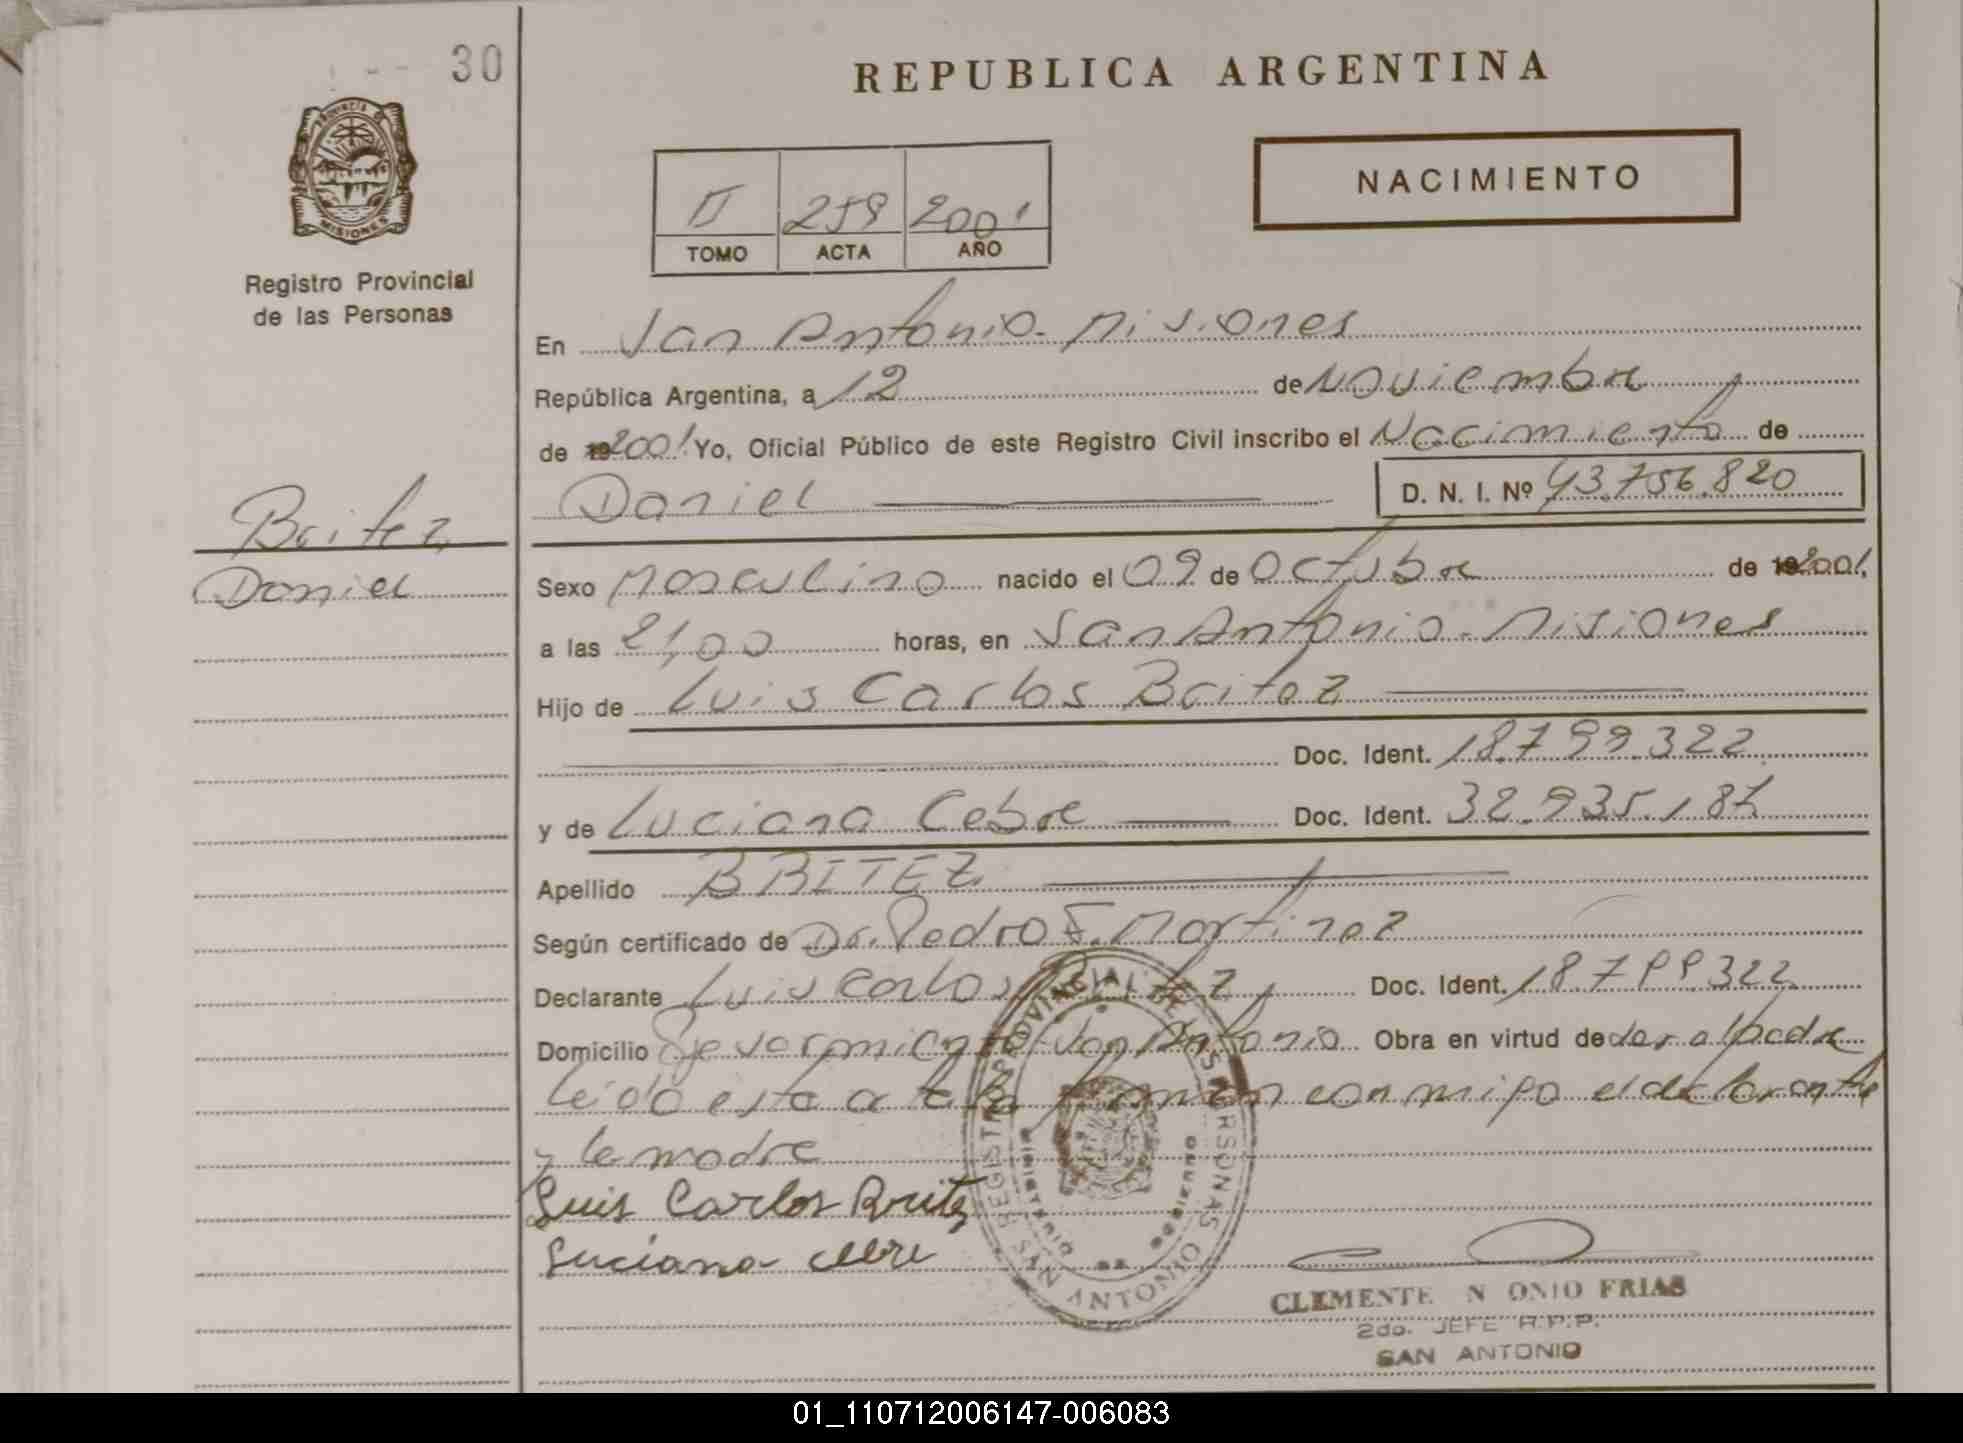 30
REPUBLICA ARGENTINA
PROVINCIA D
MISIONES
Registro Provincial
de las Personas
II 259 2001
TOMO ACTA AÑO
NACIMIENTO
En San Antonio - Misiones
República Argentina, a 12 de Noviembre
de 192001 Yo, Oficial Público de este Registro Civil inscribo el Nacimiento de
Daniel D. N. I. Nº 43.756.820
Britez
Daniel
Sexo Masculino nacido el 09 de Octubre de 192001,
a las 21,00 horas, en San Antonio - Misiones
Hijo de Luis Carlos Britez
Doc. Ident. 18.799.322
y de Luciana Cebre Doc. Ident. 32.935.187
Apellido BRITEZ
Según certificado de Dr. Pedro E. Martinez
Declarante Luis Carlos Doc. Ident. 18.799.322
Domicilio San Antonio Obra en virtud de ser al padre
leido esta acta la firman conmigo el declarante
y la madre
Luis Carlos Britez
Luciana Cebre
REGISTRO PROVINCIAL DE LAS PERSONAS
MINISTERIO DE GOBIERNO
SAN ANTONIO
CLEMENTE N ONIO FRIAS
2do. JEFE R.P.P.
SAN ANTONIO
01_110712006147-006083